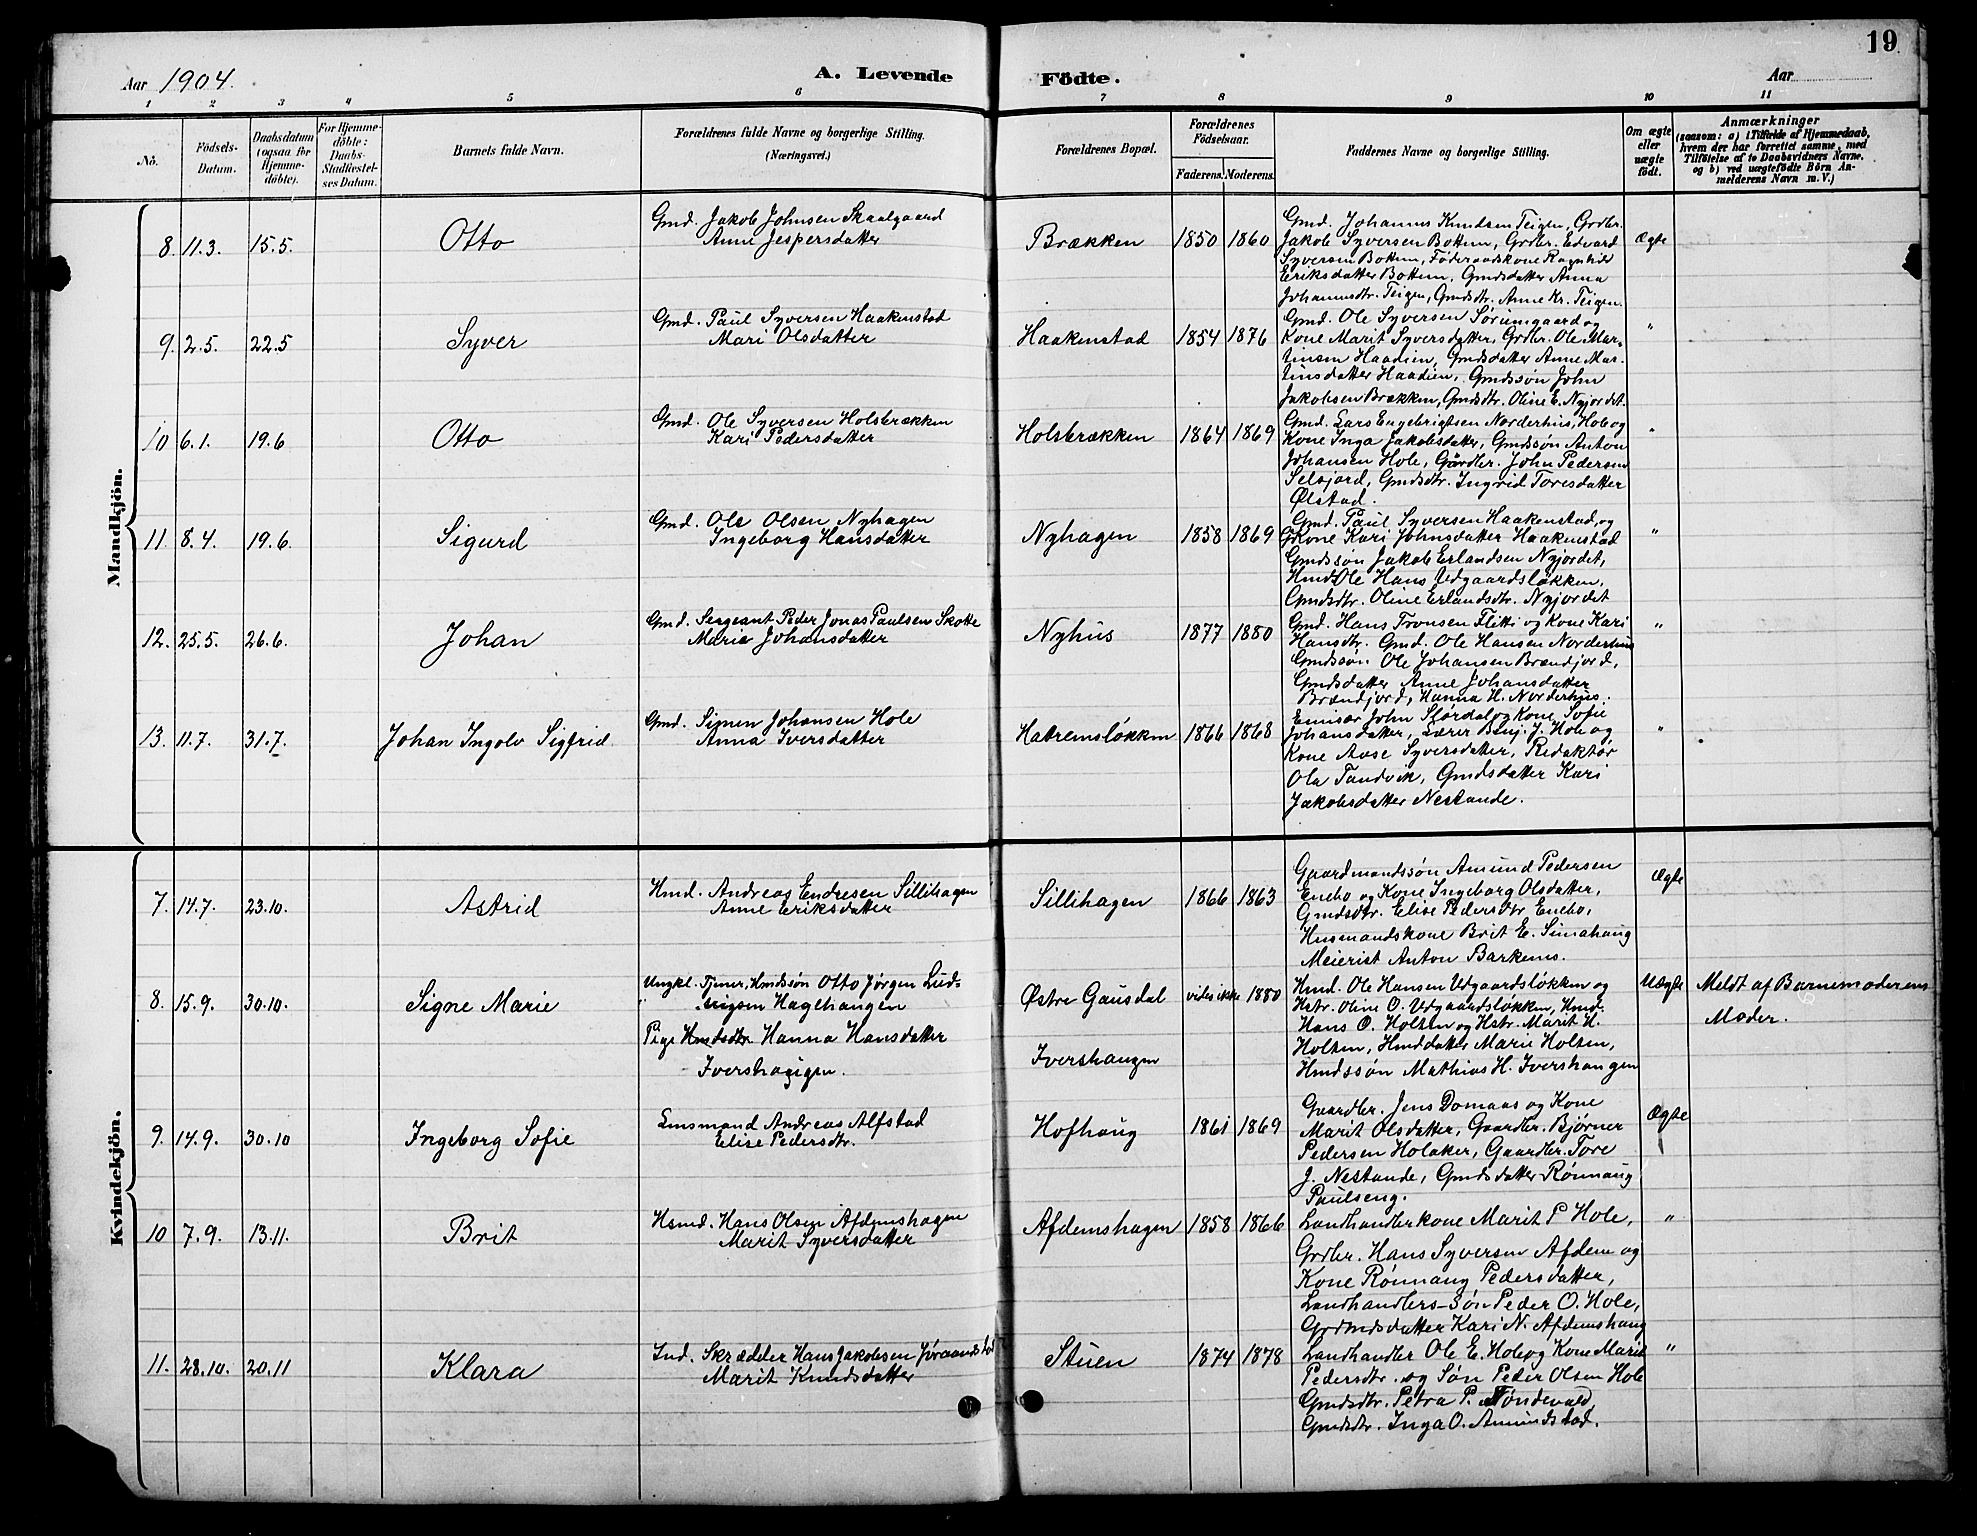 19
Aar 1904. A. Levende Födte. Aar
1 2 3 4 5 6 7 8 9 10 11
No.
Födsels-Datum.
Daabsdatum (ogsaa for Hjemme-döbte).
For Hjemme-döbte: Daabs-Stadfæstel-ses Datum.
Barnets fulde Navn.
Forældrenes fulde Navne og borgerlige Stilling. (Næringsvei.)
Forældrenes Bopæl.
Forældrenes Födselsaar. Faderens. Moderens.
Faddernes Navne og borgerlige Stilling.
Om ægte eller uægte födt.
Anmærkninger
(saasom: a) i Tilfælde af Hjemmedaab, hvem der har forrettet samme, med Tilföielse af to Daabsvidners Navne, og b) ved uægtefödte Börn Anmelderens Navn m. V.)
Mandkjön.
8. 11.3. 15.5. Otto
Gmd. Jakob Johnsen Skaalgaard
Anne Jespersdatter
Brækken 1850 1860
Gmd. Johannes Knudsen Teigen, Grdbr.
Jakob Syversen Bottem, Grdbr. Edvard
Syversen Bottem, Föderaadskone Ragnhild
Eriksdatter Bottem, Gmdsdatter Anna
Johannesdtr. Teigen, Gmdsdtr. Anne Kr. Teigen.
Ægte
9. 2.5. 22.5 Syver
Gmd. Paul Syversen Haakenstad
Mari Olsdatter
Haakenstad 1854 1876
Gmd. Ole Syversen Sørumgaard og
Kone Marit Syversdatter, Grdbr. Ole Mar-
tinsen Haadien, Gmdsdatter Anne Mar-
tinsdatter Haadien, Gmdssön John
Jakobsen Brækken, Gmdsdtr. Oline E. Nyjordet.
"
10 6.1. 19.6 Otto
Gmd. Ole Syversen Holsbrækken
Kari Pedersdatter
Holsbrækken 1864 1869
Gmd. Lars Engebrigtsen Norderhus, Hole og
Kone Inga Jakobsdatter, Gmdssön Anton
Johansen Hole, Gårdbr. John Pedersen
Selsjord, Gmdsdtr. Ingrid Toresdatter
Ølstad.
"
11 8.4. 19.6 Sigurd
Gmd. Ole Olsen Nyhagen
Ingeborg Hansdatter
Nyhagen 1858 1869
Gmd. Paul Syversen Haakenstad, og
GKone Kari Johnsdatter Haakenstad
Gmdssön Jakob Erlandsen Nyjordet,
Hmd. Ole Hans Vdgaardsløkken,
Gmdsdtr. Oline Erlandsdtr. Nyjordet
"
12. 25.5. 26.6. Johan
Gmd. Sergeant Peder Jonas Paulsen Skotte
Marie Johansdatter
Nyhus 1877 1880
Gmd. Hans Tronsen Flitti og Kone Kari
Hansdtr. Gmd. Ole Hansen Norderhus
Gmdssön Ole Johansen Brændjord,
Gmdsdatter Anne Johansdatter
Brændjord, Hanna H. Norderhus.
"
13. 11.7. 31.7. Johan Ingolv Sigfrid
Gmd. Simen Johansen Hole
Anna Iversdatter
Hatremsløkken 1866 1868
Emisær John Størdal og Kone Sofie
Johansdatter, Lærer Benj. J. Hole og
Kone Aase Syversdatter, Redaktør
Ola Tandvik, Gmdsdatter Kari
Jakobsdatter Nestande.
"
Kvindekjön.
7. 14.7. 23.10. Astrid
Hmd. Andreas Endresen Sillihagen
Anne Eriksdatter
Sillihagen 1866 1863
Gaardmandssön Amund Pedersen
Enebo og Kone Ingeborg Olsdatter,
Gmdsdtr. Elise Pedersdtr Enebo,
Husmandskone Brit E. Simahaug
Meierist Anton Barkenes.
Ægte
8. 15.9. 30.10. Signe Marie
Ungkl. Tjener, Hmdssön Otto Jørgen Lud-
vigsen Haglhaugen
Pige Hmdsdtr Hanna Hansdatter
Ivershaugen.
Østre Gausdal vides ikke 1880
Ivershaugen
Hmd. Ole Hansen Vdgaardsløkken og
Hstr. Oline O. Vdgaardsløkken, Hmd.
Hans O. Holten og Hstr. Marit H.
Holten, Hmddatter Marie Holten,
Hmdssön Mathias H. Ivershaugen
Uægte
Meldt af Barnemoderens
Moder.
9. 14.9. 30.10 Ingeborg Sofie
Lensmand Andreas Alfstad
Elise Pedersdtr.
Hofhaug 1861 1869
Gaardbr. Jens Domaas og Kone
Marit Olsdatter, Gaardbr. Bjørner
Pedersen Holaker, Gaardbr. Tore
J. Nestande, Gmdsdatter Rønnaug
Paulseng.
Ægte
10 7.9. 13.11. Brit
Hsmd. Hans Olsen Afdemshagen
Marit Syversdatter
Afdemshagen 1858 1866
Landhandlerkone Marit P Hole,
Grdbr. Hans Syversen Afdem og
Kone Rønnaug Pedersdatter,
Landhandlers-Sön Peder O. Hole,
Grdmdsdatter Kari N. Afdemshaug
"
11. 28.10. 20.11 Klara
Ind. Skrædder Hans Jakobsen Jøraandstad
Marit Knudsdatter
Stuen 1874 1878
Landhandler Ole E. Hole og Kone Marit
Pedersdtr. og Søn Peder Olsen Hole
Gmdsdtr. Petra P. Tøndevald,
Gmdsdtr. Inga O. Amundstad.
"